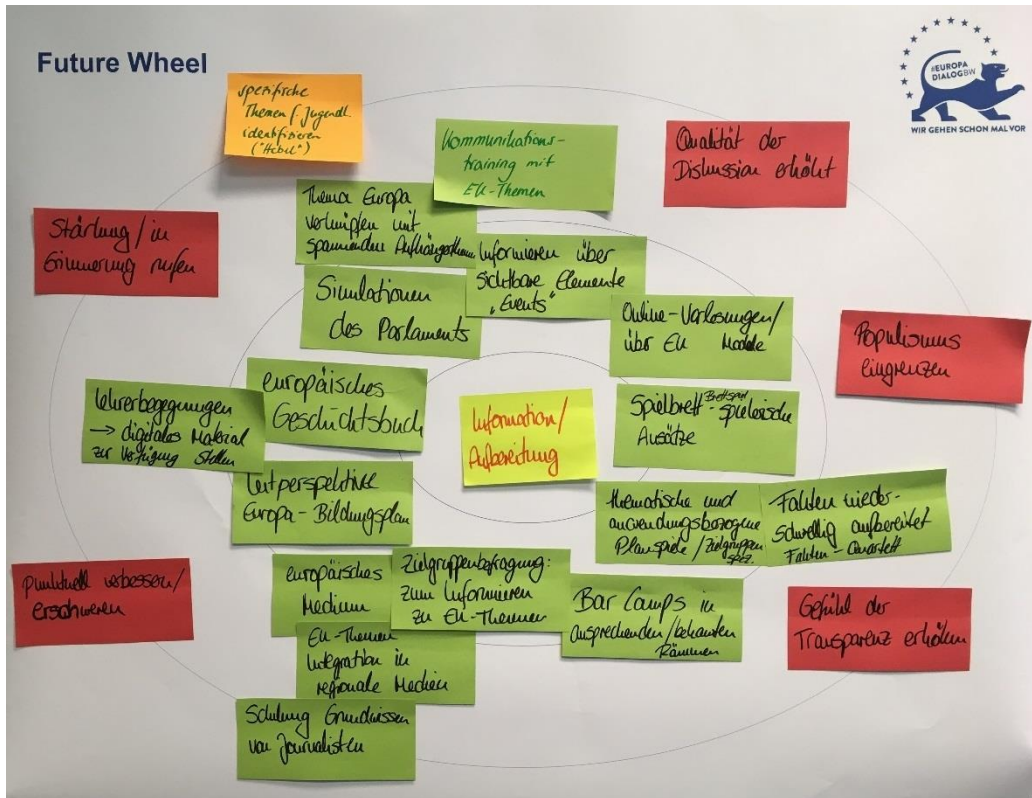 Future Wheel
#EUROPA
DIALOGBW
WIR GEHEN SCHON MAL VOR
spezifische
Themen f. Jugendl.
identifizieren
("Hebel")
Kommunikations-
training mit
EU-Themen
Qualität der
Diskussion erhöht
Stärkung/in
Erinnerung rufen
Thema Europa
verknüpfen mit
spannenden Aufhängerthemen
Informieren über
sichtbare Elemente
"Events"
Simulationen
des Parlaments
Online-Vorlesungen/
über EU Module
Populismus
eingrenzen
europäisches
Geschichtsbuch
Lehrerbegegnungen
→ digitales Material
zur Verfügung stellen
Information/
Aufbereitung
Spielbrett Brettspiel-spielerische
Ansätze
Leitperspektive
Europa-Bildungsplan
thematische und
anwendungsbezogene
Planspiele/Zielgruppen
spez.
Fakten nieder-
schwellig aufbereitet
Fakten-Quartett
punktuell verbessern/
erschweren
europäisches
Medium
Zielgruppenbefragung:
zum Informieren
zu EU-Themen
Bar Camps in
ansprechenden/bekannten
Räumen
Gefühl der
Transparenz erhöhen
EU-Themen
Integration in
regionale Medien
Schulung Grundwissen
von Journalisten